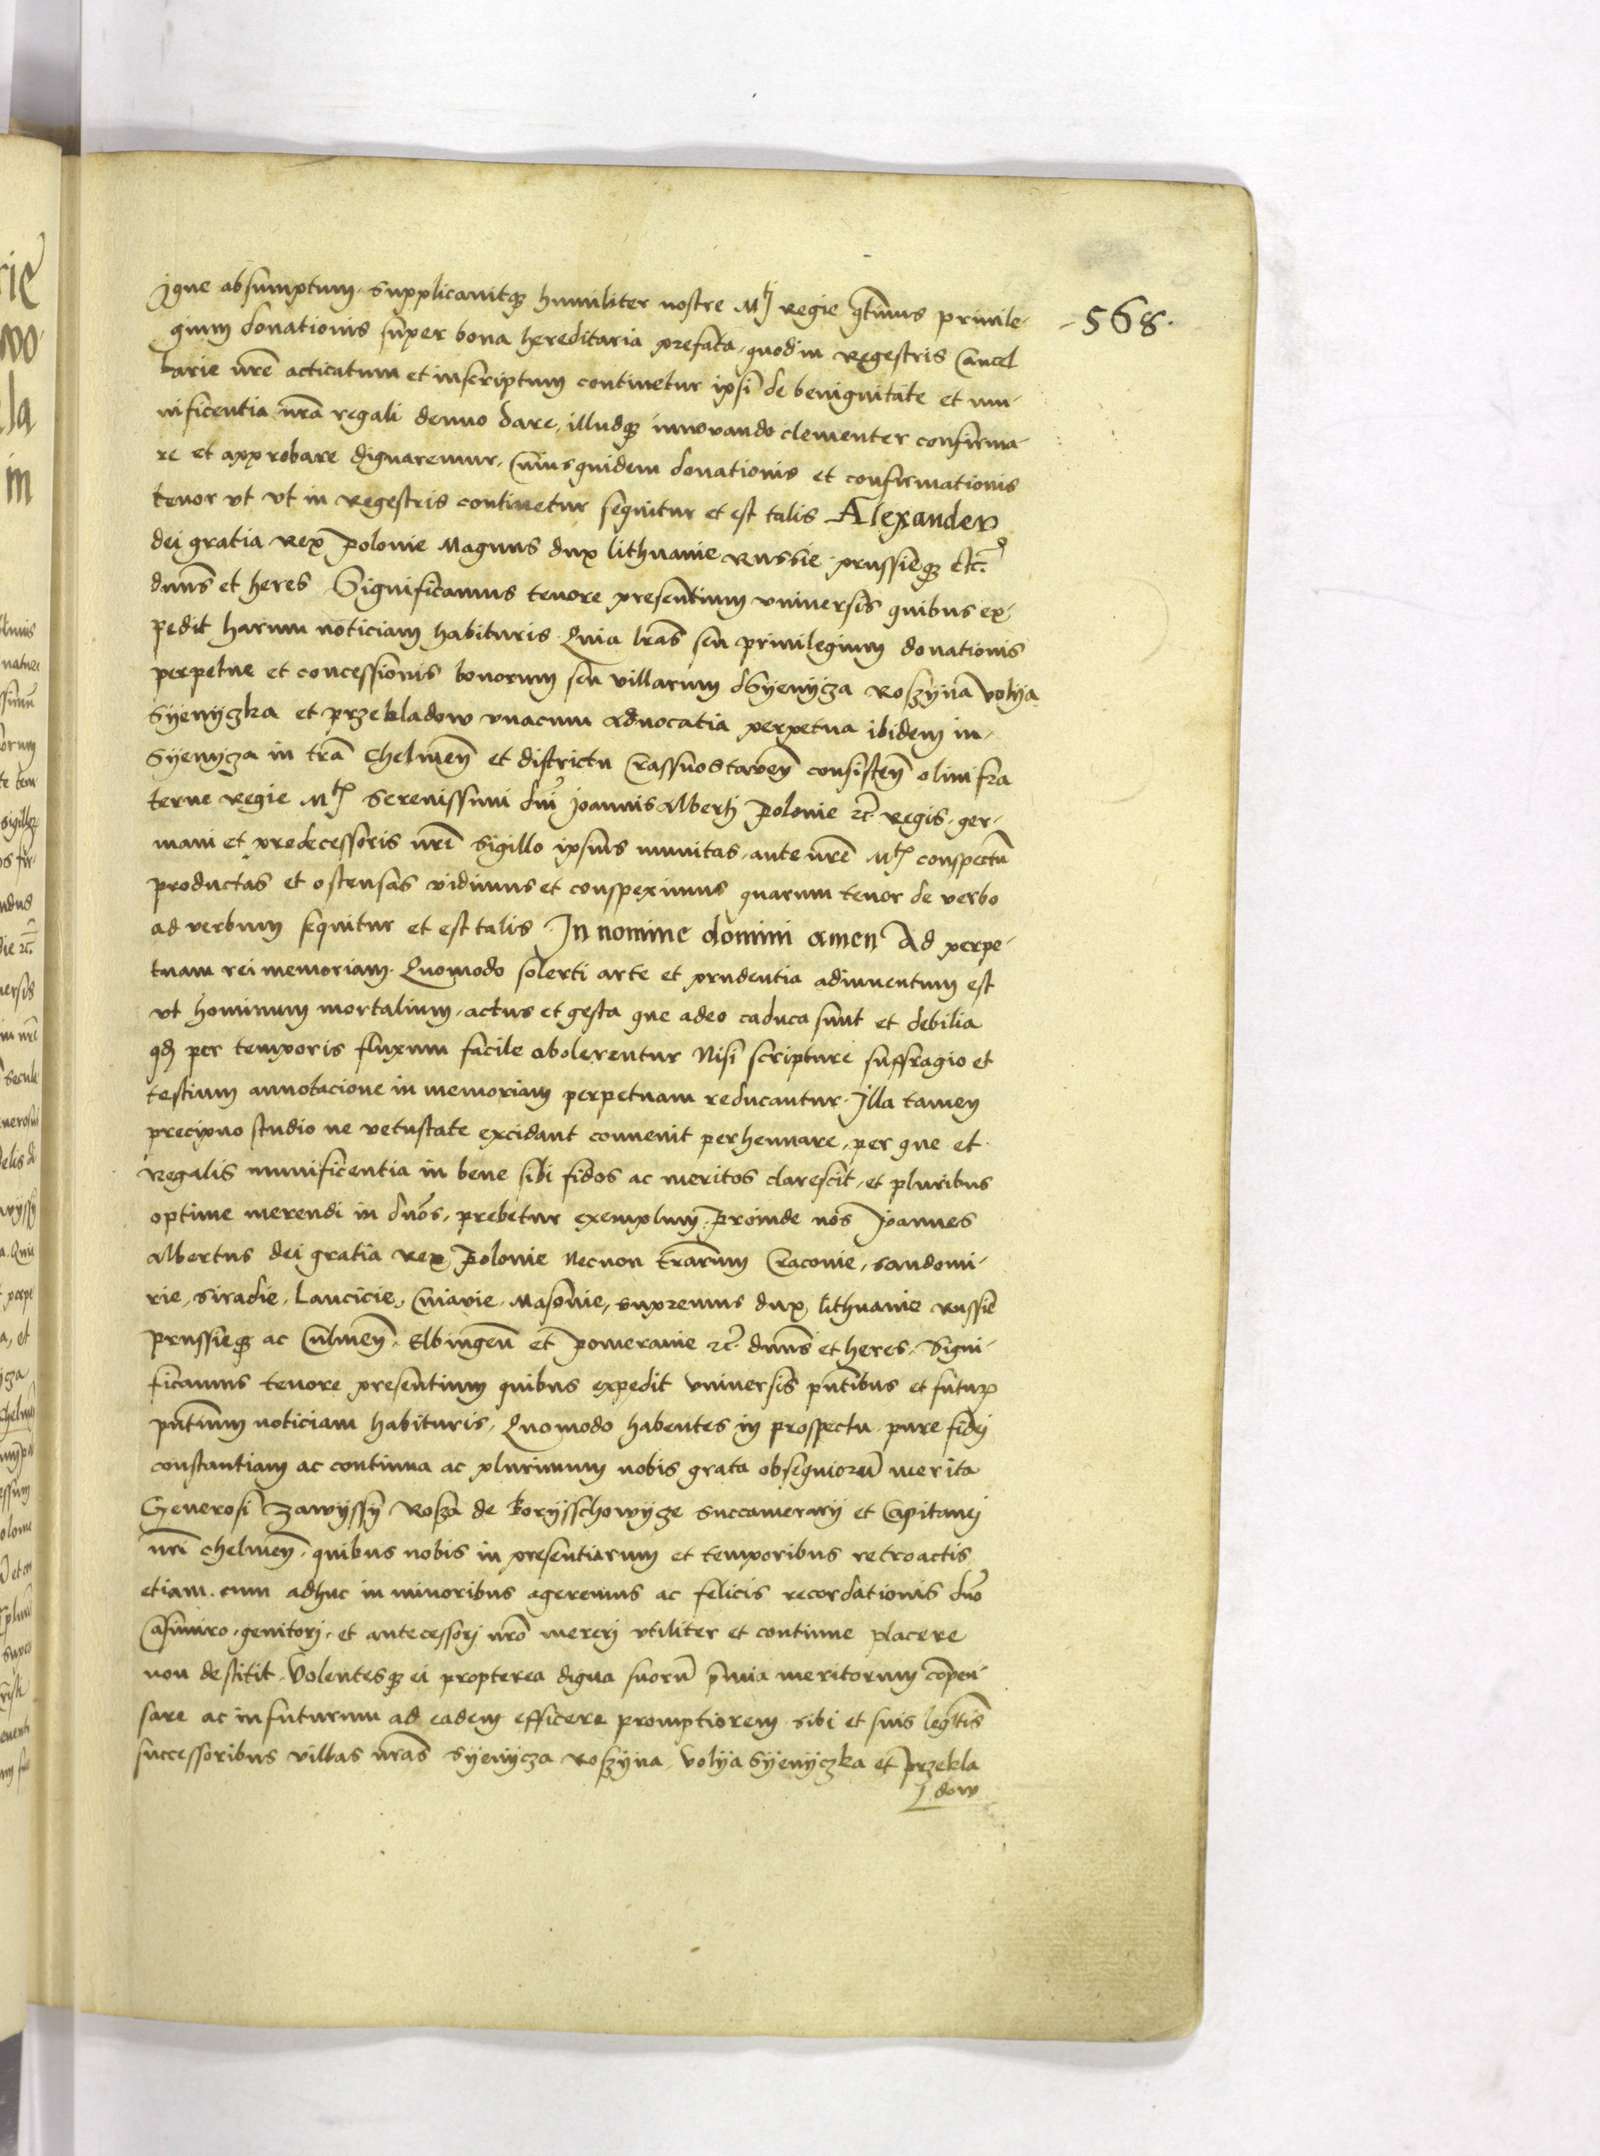 568
igne absumptum. supplicavitque humiliter nostre Mtj Regie qtinus privile-
gium donationis super bona hereditaria prefata, quod in Regestris Cancel
larie nre acticatum et inscriptum continetur ipsi de benignitate et mu-
nificentia nra regali denuo dare, illudque innovando clementer confirma-
re et approbare dignaremur. Cuiusquidem donationis et confirmationis
tenor vt vt in Regestris continetur sequitur et est talis Alexander
dei gratia Rex Polonie Magnus dux lithuanie Russie prussieque etc.
dnus et heres Significamus tenore presentium vniversis quibus ex-
pedit harum noticiam habituris Quia lras seu privilegium donationis
perpetue et concessionis bonorum seu villarum dSyenycza Roszyna volya
Syenyczka et przekladow vnacum advocatia perpetua ibidem in-
Syenycza in tra Chelmen et districtu Crassnostaven consisten olim fra
terne Regie Mtis Serenissimi dni Joannis Alberti Polonie etc regis. ger-
mani et predecessoris nri sigillo ipsius munitas, ante nre Mtis conspectu
productas et ostensas vidimus et conspeximus quarum tenor de verbo
ad verbum sequitur et est talis In nomine domini amen Ad perpe-
tuam rei memoriam. Quomodo solerti arte et prudentia adinventum est
vt hominum mortalium, actus et gesta que adeo caduca sunt et debilia
qd per temporis fluxum facile abolerentur Nisi scripture suffragio et
testium annotacione in memoriam perpetuam reducantur. Illa tamen
precipuo studio ne vetustate excidant convenit perhennare, per que et
Regalis munificentia in bene sibi fidos ac meritos clarescit, et pluribus
optime merendi in dnos, prebetur exemplum. Proinde nos Joannes
Albertus dei gratia Rex Polonie Necnon trarum Cracovie, Sandomi-
rie, Siradie, Lancicie, Cuiavie, Masovie, supremus dux, lithuanie Russie
Prussieque ac Culmen. Elbingen et Pomeranie etc. dnus et heres. Signi-
ficamus tenore presentium quibus expedit vniversis pntibus et futur
pntium noticiam habituris, Quomodo habentes in prospectu pure fidei
constantiam ac continua ac plurimum nobis grata obsequioru merita
Generosi Zawyssy Rosza de Boryschowycze succamerarij et Capitanei
nri Chelmen, quibus nobis in presentiarum et temporibus retroactis
etiam cum adhuc in minoribus ageremus ac felicis recordationis dno
Casimiro, genitori, et antecessori nro mereri vtiliter et continue placere
non destitit. Volentesque ei propterea digna suoru pmia meritorum compen-
sare ac in futurum ad eadem efficere promptiorem sibi et suis legittis
successoribus villas nras Syenycza Roszyna, Volya Syenyczka et Przekla
dow